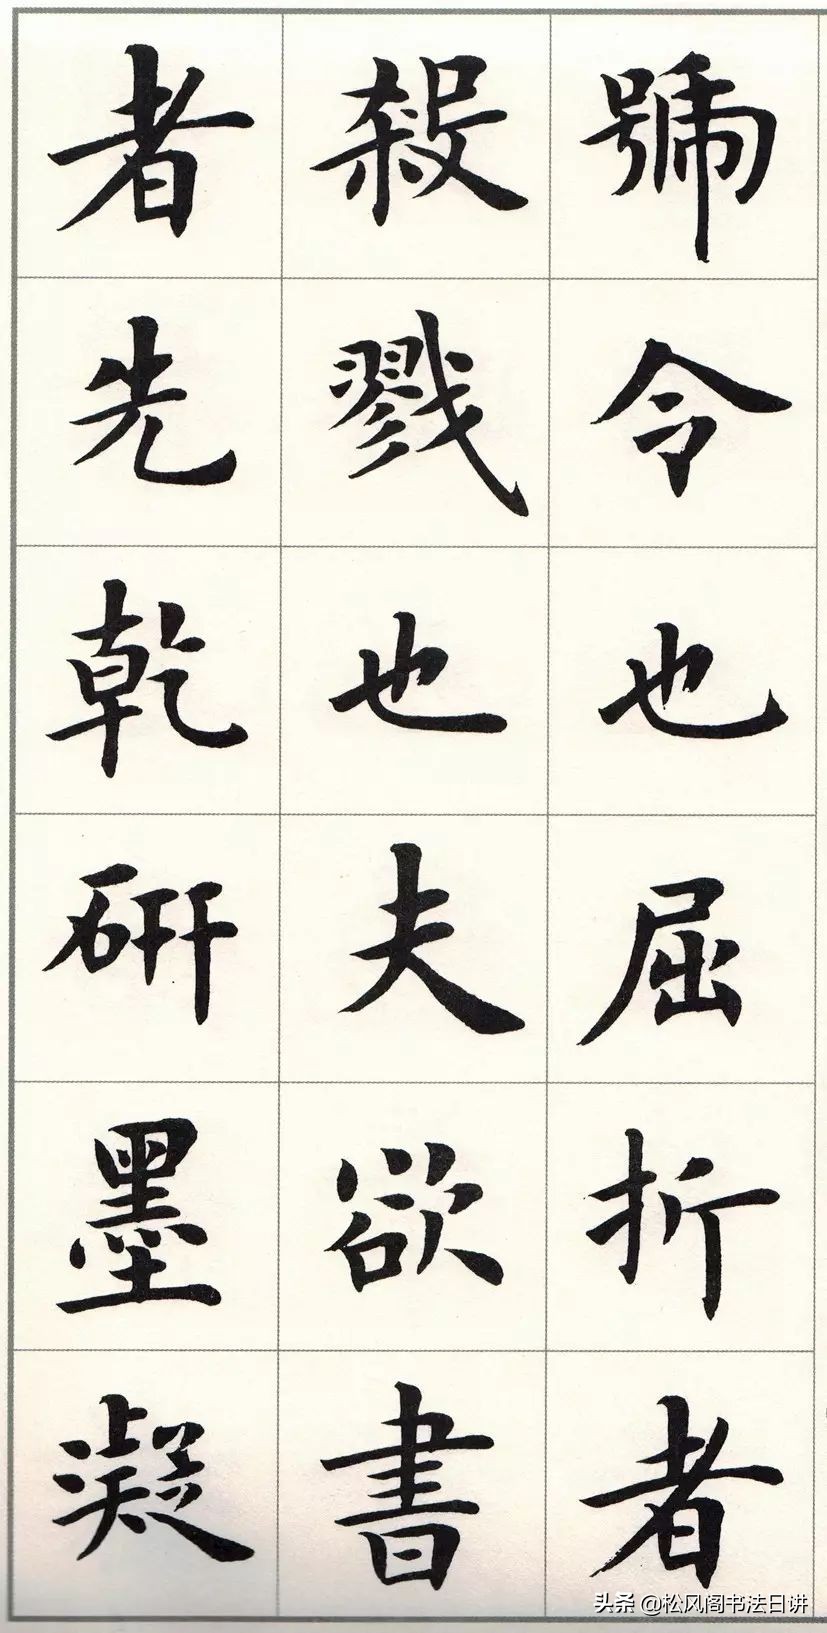 號令也屈折者
殺戮也夫欲書
者先乾研墨凝
头条 @松风阁书法日讲